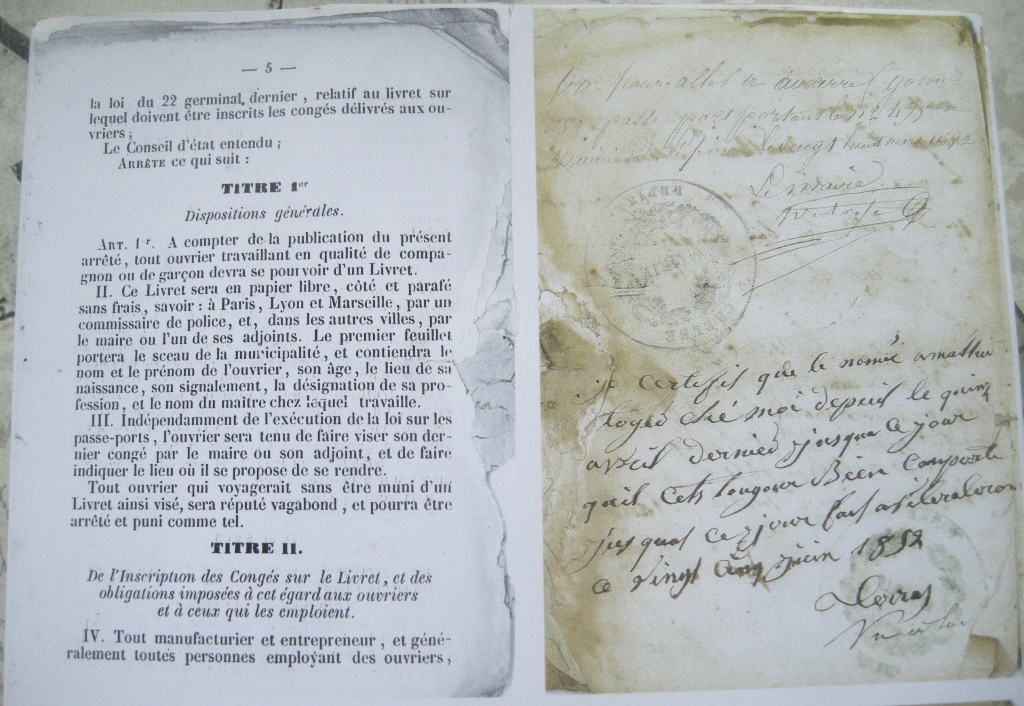 — 5 —
la loi du 22 germinal dernier, relatif au livret sur
lequel doivent être inscrits les congés délivrés aux ou-
vriers;
Le Conseil d'état entendu;
ARRÊTE ce qui suit :
TITRE 1er
Dispositions générales.
ART. 1r. A compter de la publication du présent
arrêté, tout ouvrier travaillant en qualité de compa-
gnon ou de garçon devra se pourvoir d'un Livret.
II. Ce Livret sera en papier libre, côté et parafé
sans frais, savoir : à Paris, Lyon et Marseille, par un
commissaire de police, et, dans les autres villes, par
le maire ou l'un de ses adjoints. Le premier feuillet
portera le sceau de la municipalité, et contiendra le
nom et le prénom de l'ouvrier, son âge, le lieu de sa
naissance, son signalement, la désignation de sa pro-
fession, et le nom du maître chez lequel travaille.
III. Indépendamment de l'exécution de la loi sur les
passe-ports, l'ouvrier sera tenu de faire viser son der-
nier congé par le maire ou son adjoint, et de faire
indiquer le lieu où il se propose de se rendre.
Tout ouvrier qui voyagerait sans être muni d'un
Livret ainsi visé, sera réputé vagabond, et pourra être
arrêté et puni comme tel.
TITRE II.
De l'Inscription des Congés sur le Livret, et des
obligations imposées à cet égard aux ouvriers
et à ceux qui les emploient.
IV. Tout manufacturier et entrepreneur, et géné-
ralement toutes personnes employant des ouvriers,
pour aller a auxerre
passe port portant le
mars 1852
Le maire
je certifis que le nomée amathieu
ché moi depuis le quinz
avril dernier jusqua ce jour
quil cets toujour Bien comporté
jusquat ce jour fait
ce vingt cinq juin 1852